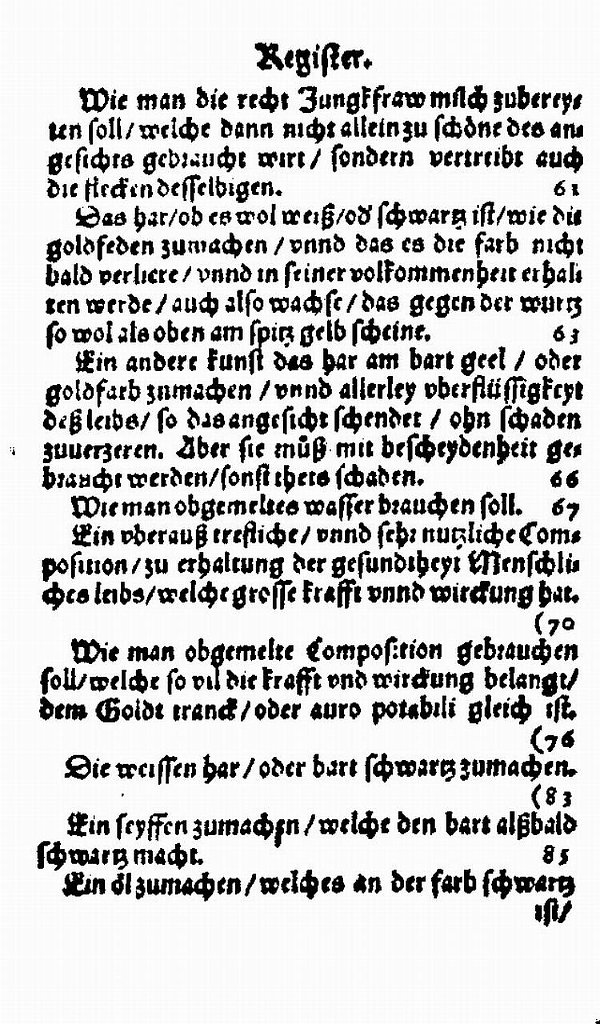 Register.
Wie man die recht Jungkfraw milch zuberey⸗
ten soll/ welche dann nicht allein zu schöne des an⸗
gesichts gebraucht wirt/ sondern vertreibt auch
die flecken desselbigen. 61
Das har/ ob es wol weiß/ od' schwartz ist/ wie die
goldfeden zumachen/ vnnd das es die farb nicht
bald verliere/ vnnd in seiner volkommenheit erhal⸗
ten werde/ auch also wachse/ das gegen der wurtz
so wol als oben am spitz gelb scheine. 63
Ein andere kunst das har am bart geel/ oder
goldfarb zumachen/ vnnd allerley vberflüssigkeyt
deß leibs/ so das angesicht schendet/ ohn schaden
zuuerzeren. Aber sie můß mit bescheydenheit ge⸗
braucht werden/ sonst thets schaden. 66
Wie man obgemeltes wasser brauchen soll. 67
Ein vberauß trefliche/ vnnd sehr nutzliche Com⸗
position/ zu erhaltung der gesundtheyt Menschli⸗
ches leibs/ welche grosse krafft vnnd wirckung hat.
(70
Wie man obgemelte Composition gebrauchen
soll/ welche so vil die krafft vnd wirckung belangt/
dem Goldt tranck/ oder auro potabili gleich ist.
(76
Die weissen har/ oder bart schwartz zumachen.
(83
Ein seyffen zumachen/ welche den bart alßbald
schwartz macht. 85
Ein öl zumachen/ welches an der farb schwartz
ist/